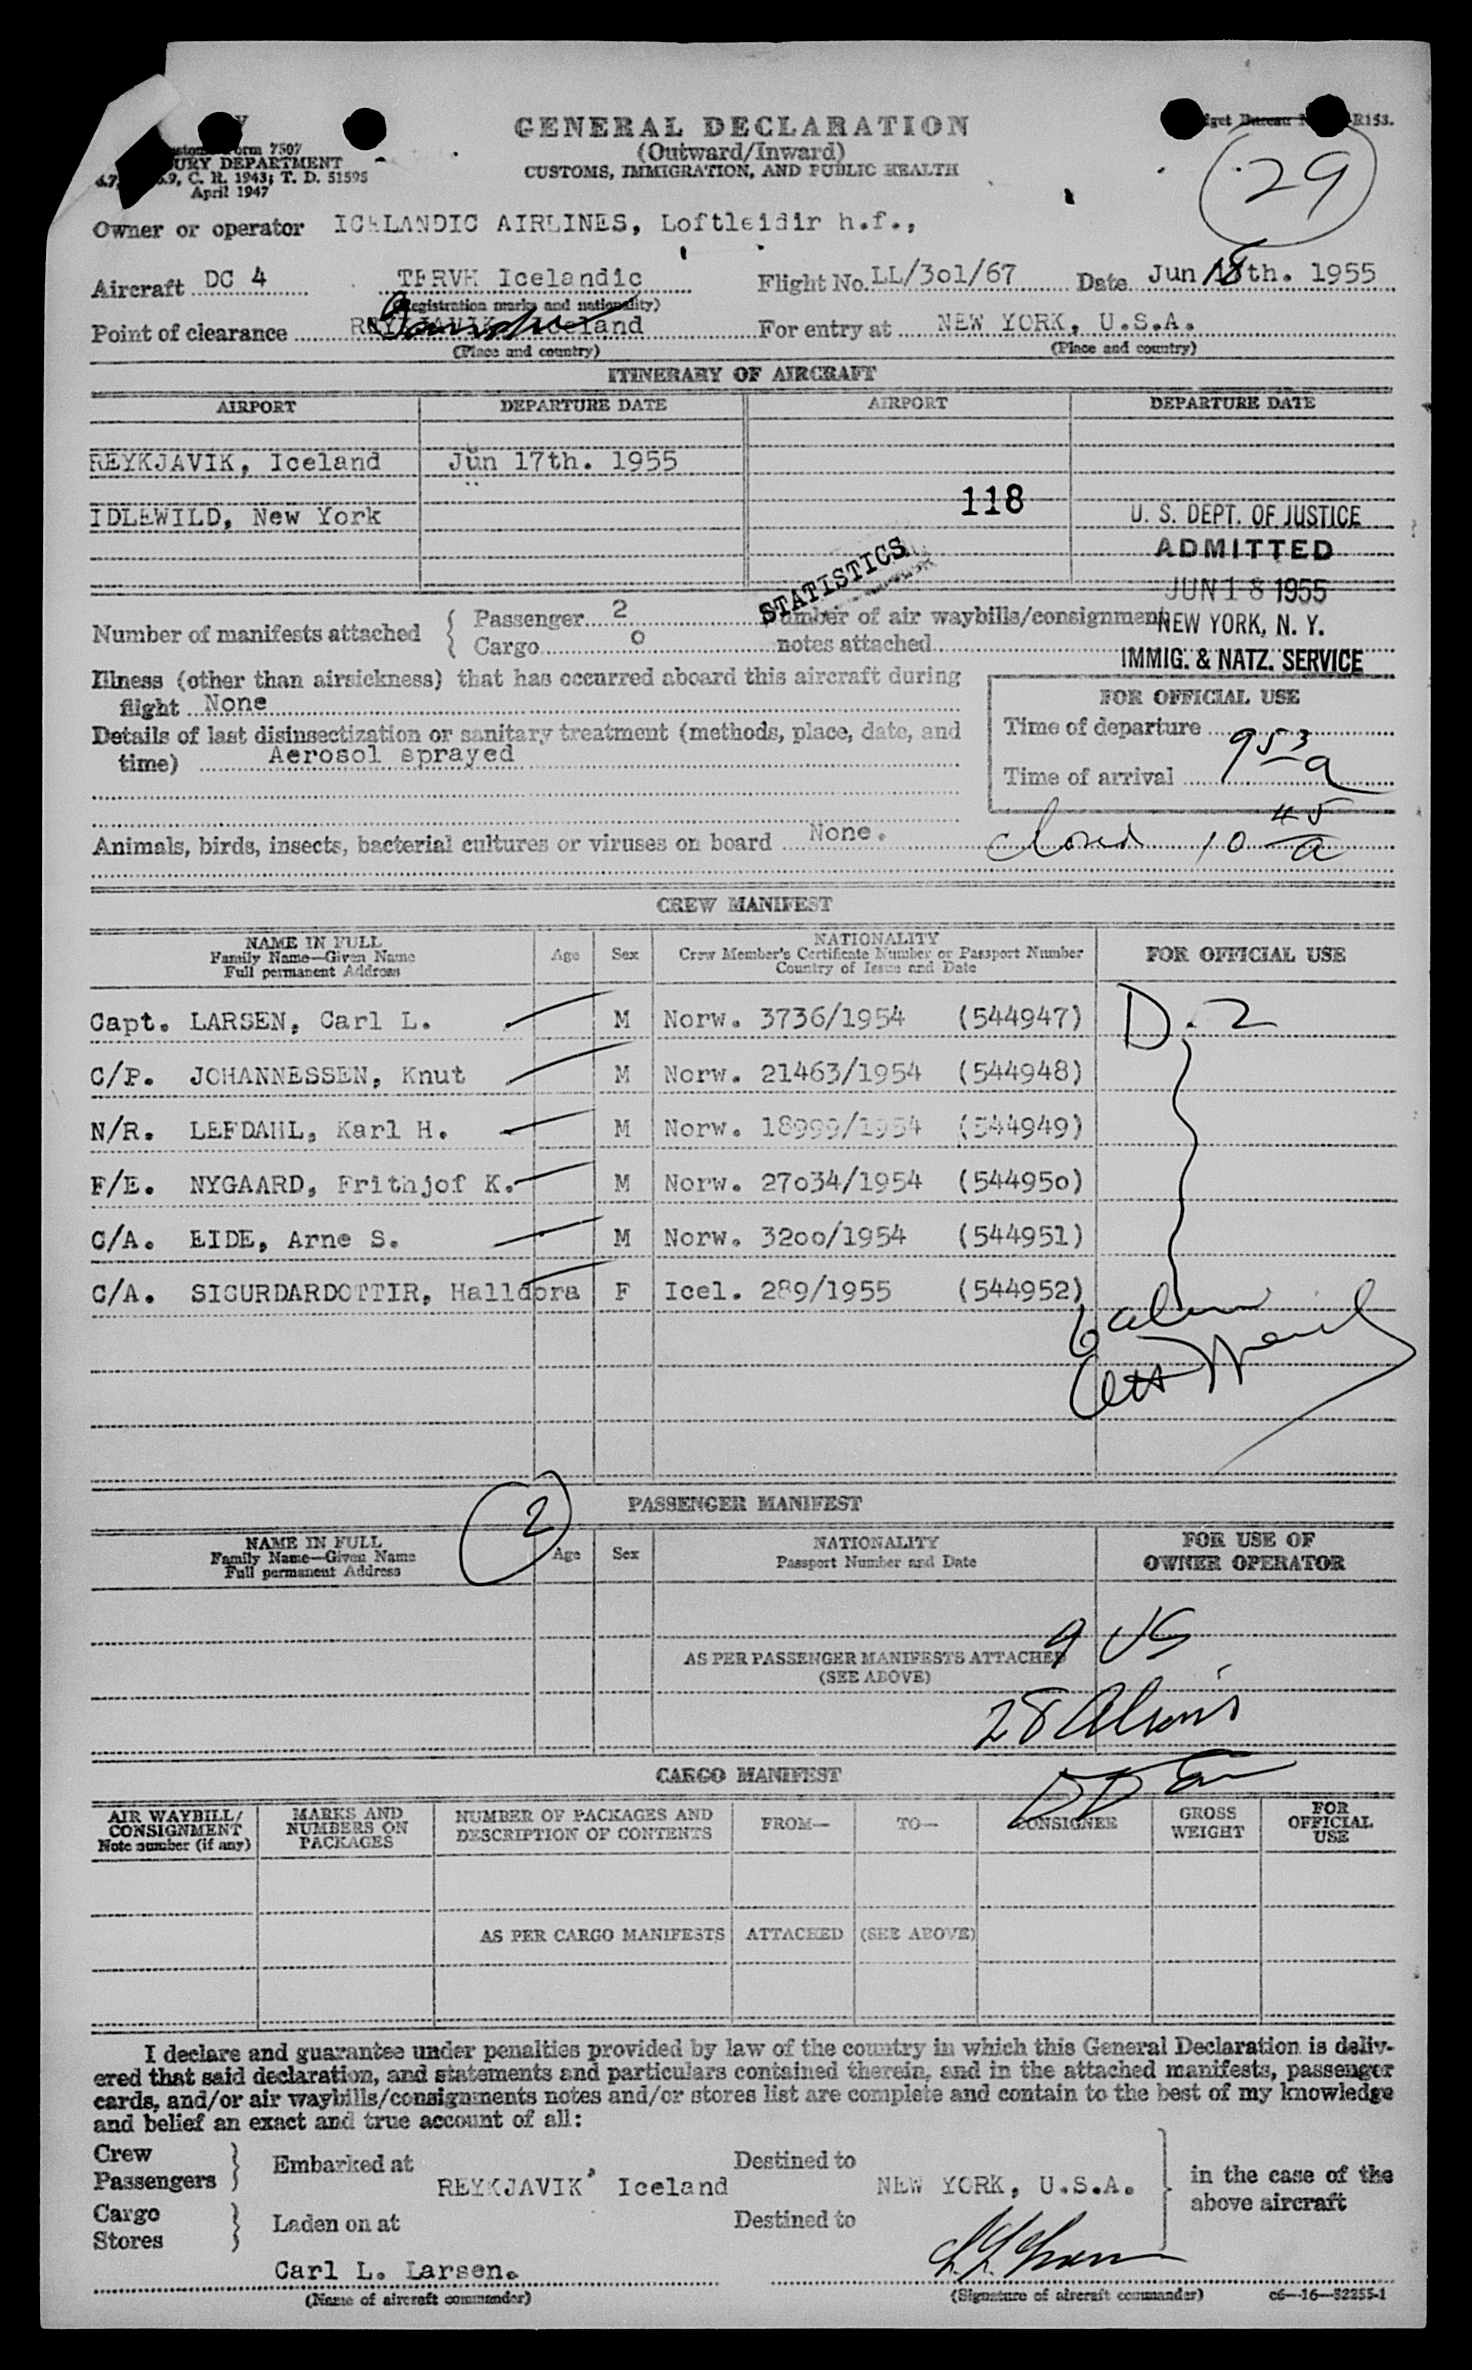 GENERAL DECLARATION
(Outward/Inward)
CUSTOMS, IMMIGRATION, AND PUBLIC HEALTH
Form 7507
DEPARTMENT
C. R. 1943; T. D. 51595
April 1947
R153.
29
Owner or operator ICELANDIC AIRLINES, Loftleidir h.f.,
Aircraft DC 4 TFRVH Icelandic Flight No. LL/301/67 Date Jun 18th. 1955
(Registration marks and nationality)
Point of clearance REYKJAVIK, Iceland For entry at NEW YORK, U.S.A.
(Place and country) (Place and country)
ITINERARY OF AIRCRAFT
AIRPORT DEPARTURE DATE AIRPORT DEPARTURE DATE
REYKJAVIK, Iceland Jun 17th. 1955
118
IDLEWILD, New York
U. S. DEPT. OF JUSTICE
ADMITTED
JUN 18 1955
NEW YORK, N. Y.
IMMIG. & NATZ. SERVICE
STATISTICS
Number of manifests attached { Passenger 2 Number of air waybills/consignment
Cargo 0 notes attached
Illness (other than airsickness) that has occurred aboard this aircraft during
flight None
Details of last disinsectization or sanitary treatment (methods, place, date, and
time) Aerosol sprayed
FOR OFFICIAL USE
Time of departure
Time of arrival 9 53 a
Animals, birds, insects, bacterial cultures or viruses on board None.
closed 10 45 a
CREW MANIFEST
NAME IN FULL
Family Name—Given Name
Full permanent Address
Age Sex
NATIONALITY
Crew Member's Certificate Number or Passport Number
Country of Issue and Date
FOR OFFICIAL USE
Capt. LARSEN, Carl L. M Norw. 3736/1954 (544947) D. 2
C/P. JOHANNESSEN, Knut M Norw. 21463/1954 (544948)
N/R. LEFDAHL, Karl H. M Norw. 18999/1954 (544949)
F/E. NYGAARD, Frithjof K. M Norw. 27034/1954 (544950)
C/A. EIDE, Arne S. M Norw. 3200/1954 (544951)
C/A. SIGURDARDOTTIR, Halldora F Icel. 289/1955 (544952)
PASSENGER MANIFEST
2
NAME IN FULL
Family Name—Given Name
Full permanent Address
Age Sex
NATIONALITY
Passport Number and Date
FOR USE OF
OWNER OPERATOR
9 US
AS PER PASSENGER MANIFESTS ATTACHED
(SEE ABOVE)
28 Aliens
CARGO MANIFEST
AIR WAYBILL/
CONSIGNMENT
Note number (if any)
MARKS AND
NUMBERS ON
PACKAGES
NUMBER OF PACKAGES AND
DESCRIPTION OF CONTENTS
FROM— TO— CONSIGNEE
GROSS
WEIGHT
FOR
OFFICIAL
USE
AS PER CARGO MANIFESTS ATTACHED (SEE ABOVE)
I declare and guarantee under penalties provided by law of the country in which this General Declaration is deliv-
ered that said declaration, and statements and particulars contained therein, and in the attached manifests, passenger
cards, and/or air waybills/consignments notes and/or stores list are complete and contain to the best of my knowledge
and belief an exact and true account of all:
Crew
Passengers } Embarked at REYKJAVIK, Iceland Destined to NEW YORK, U.S.A.
Cargo
Stores } Laden on at Destined to
in the case of the
above aircraft
Carl L. Larsen.
(Name of aircraft commander) (Signature of aircraft commander) c6—16—52255-1